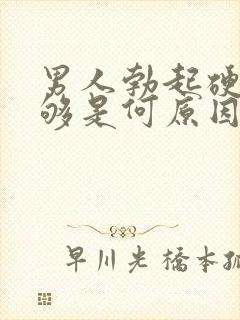 男人勃起硬
够是何原因
早川光 橋本孤